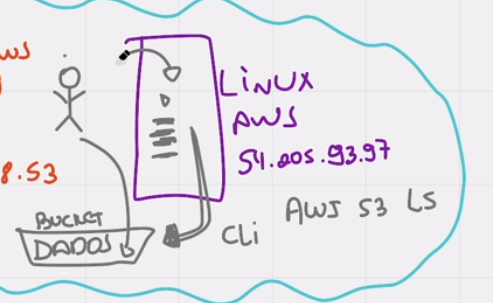 LINUX
AWS
54.205.93.97
8.53
BUCKET
DADOS
CLi
AWS S3 LS